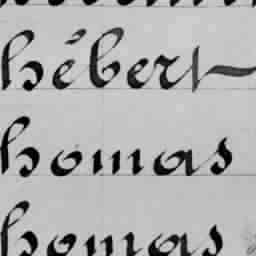 hébert
homas
homas